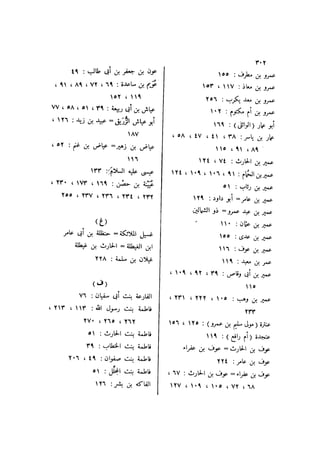 ٣٠٢
عمرو بن مطرف : ١٥٥
عمرو بن معاذ : ١١٧ ، ١٥٣
عمرو بن معد يكرب : ٢٥٦
عمرو بن أم مكتوم : ١٠٢
أبو عمار ( الوائلى ) : ١٦٩
عمار بن ياسر : ٣٨ ، ٤١ ، ٤٧ ، ٥٨ ،
٨٩ ، ٩١ ، ١١٥
عمير بن الحارث : ٧٤ ، ١٢٤
عمير بن الحُمَام : ٩١ ، ١٠٦ ، ١٠٩ ، ١٢٤
عمير بن رئاب : ٥١
عمير بن عامر = أبو داود : ١٢٩
عمير بن عبد عمرو = ذو الشمالين
عمير بن عثمان : ١١٠
عمير بن عدى : ١٥٥
عمير بن عوف : ١١٦
عمير بن معبد : ١١٩
عمير بن أبى وقاص : ٣٩ ، ٩٢ ، ١٠٩ ،
١١٥
عمير بن وهب : ١٠٥ ، ٢٢٢ ، ٢٣١ ،
٢٣٣
عنترة ( مولى سليم بن عمرو ) : ١٢٥ ، ١٥٦
عنجدة ( أم رافع ) : ١١٩
عوف بن الحارث = عوف بن عفراء
عوف بن عامر : ٢٢٤
عوف بن عفراء = عوف بن الحارث : ٦٧ ،
٦٨ ، ٧٢ ، ١٠٥ ، ١٠٩ ، ١٢٧
عون بن جعفر بن أبى طالب : ٤٩
عُوَيْم بن ساعدة : ٦٩ ، ٧٢ ، ٨٩ ، ٩١ ،
١١٩ ، ١٥٢
عياش بن أبى ربيعة : ٣٩ ، ٥١ ، ٥٨ ، ٧٧
أبو عياش الزُّرَقِى = عبيد بن زيد : ١٢٦ ،
١٨٧
عياض بن زهير = عياض بن غنم : ٥٢ ،
١١٦
عيسى عليه السلام : ١٣٣
عُيَيْنَة بن حِصْن : ١٦٩ ، ١٧٣ ، ٢٣٠ ،
٢٣٢ ، ٢٣٤ ، ٢٣٦ ، ٢٣٧ ، ٢٥٥
( غ )
غسيل الملائكة = حنظلة بن أبى عامر
ابن الغيطلة = الحارث بن غيطلة
غيلان بن سلمة : ٢٢٨
( ف )
الفارعة بنت أبى سفيان : ٧٦
فاطمة بنت رسول الله : ١١٣ ، ٢١٣ ،
٢٦٢ ، ٢٦٥ ، ٢٧٠
فاطمة بنت الحارث : ٥١
فاطمة بنت الخطاب : ٣٩
فاطمة بنت صفوان : ٤٩ ، ٢٠٦
فاطمة بنت المجلَّل : ٥١
الفاكه بن بشر : ١٢٦